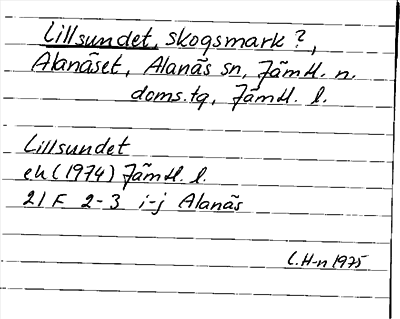 Lillsundet, skogsmark?,
Alanäset, Alanäs sn, Jämtl. n.
doms.tg, Jämtl. l.
Lillsundet
ek (1974) Jämtl. l.
21 F 2-3 i-j Alanäs
C.H-n 1975